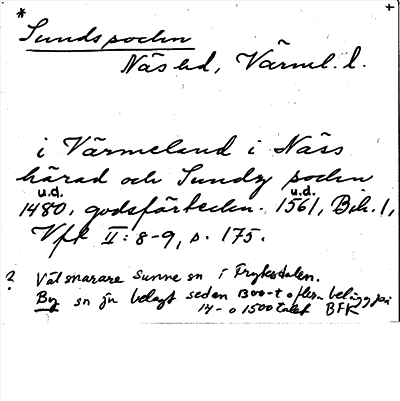 * Sundz sochn +
Näs hd, Värml. l.
i Värmeland i Näss
härad och Sundz sochn
u.d. u.d.
1480, godsförteckn. 1561, Bih. 1,
Vfk II: 8-9, s. 175.
? Väl snarare Sunne sn i Fryksdalen.
By sn ju belagt sedan 1300-t o flera belägg på
14- o 1500talet BFK